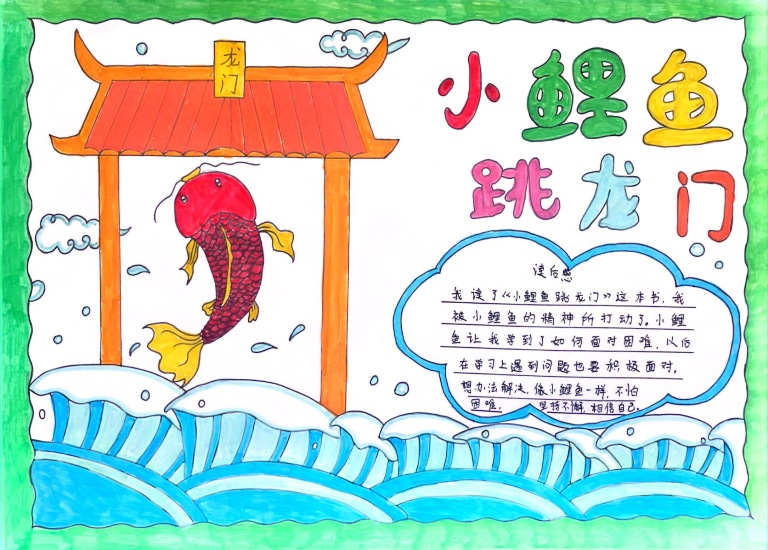 龙门
小鲤鱼
跳龙门
读后感
我读了《小鲤鱼跳龙门》这本书，我
被小鲤鱼的精神所打动了。小鲤
鱼让我学到了如何面对困难，以后
在学习上遇到问题也要积极面对，
想办法解决，像小鲤鱼一样，不怕
困难，坚持不懈，相信自己。